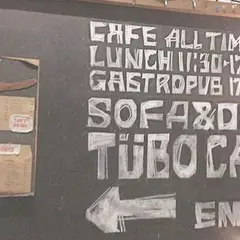 CAFE ALL TIM
LUNCH 11:30-17
GASTROPUB 17
SOFA&O
TŪBO CA
EN